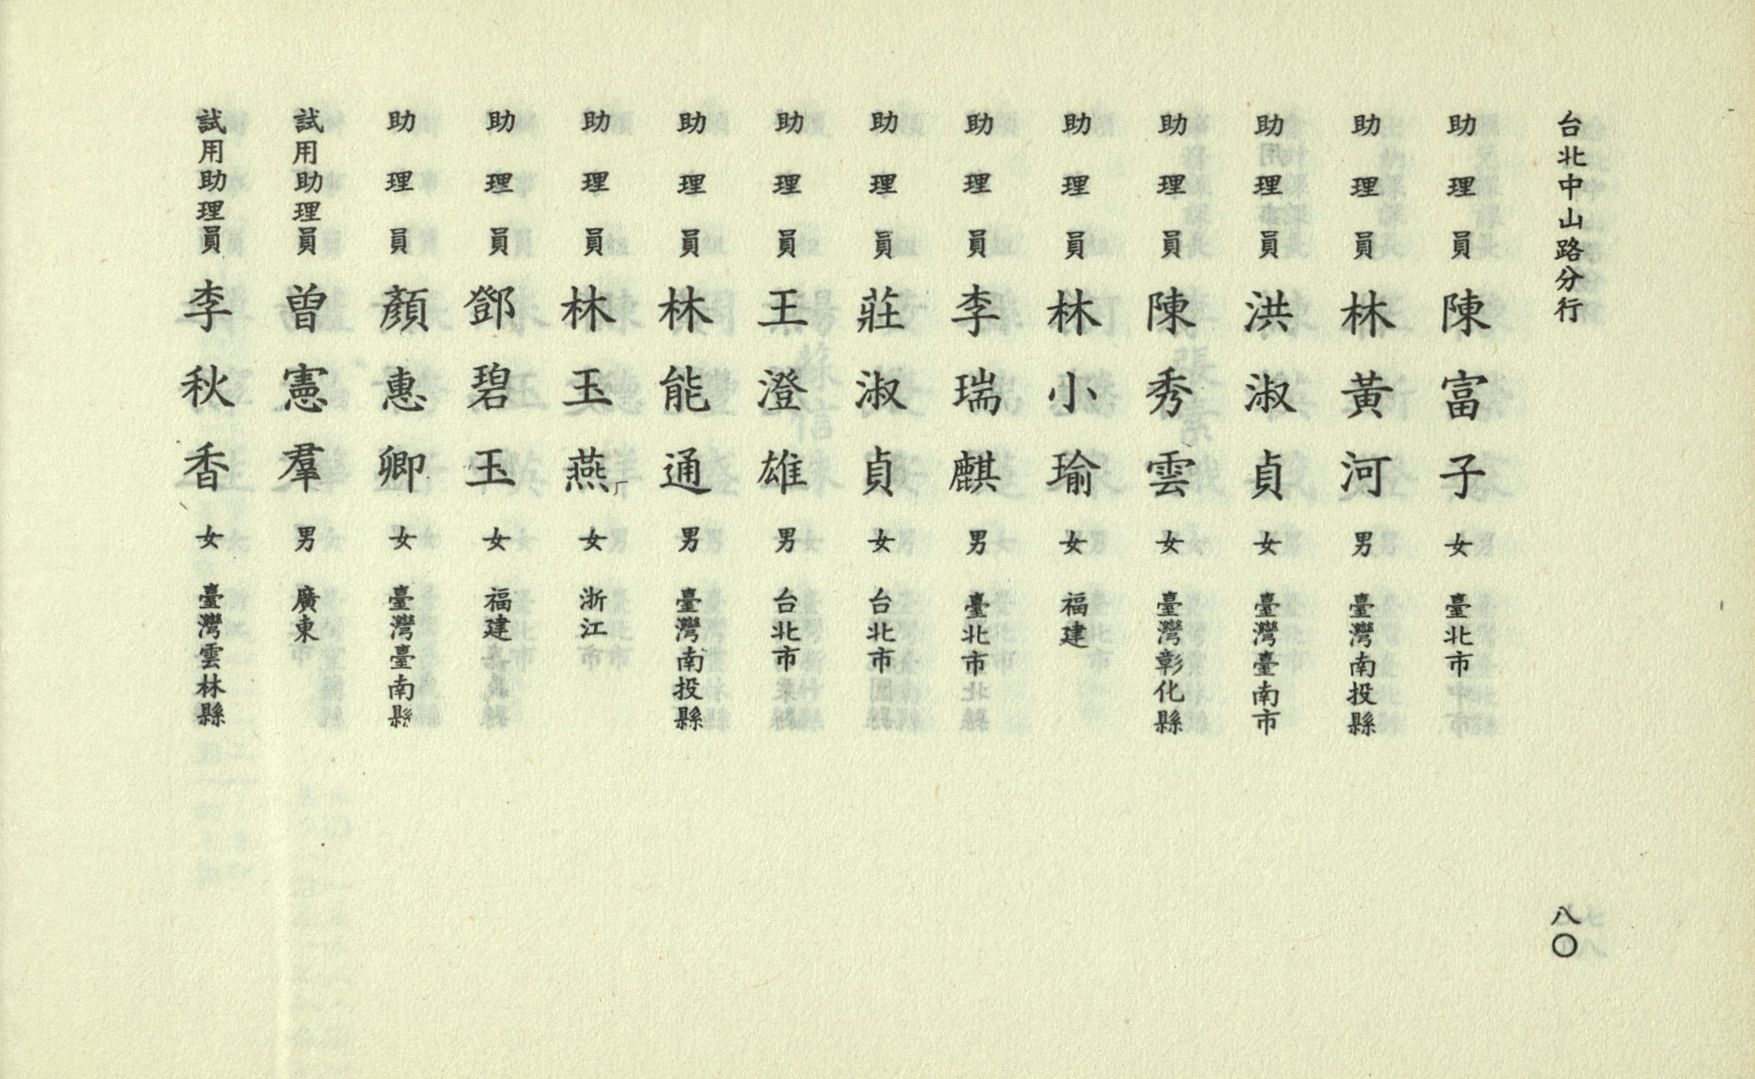 台北中山路分行 八〇
助理員 陳富子 女 臺北市
助理員 林黃河 男 臺灣南投縣
助理員 洪淑貞 女 臺灣臺南市
助理員 陳秀雲 女 臺灣彰化縣
助理員 林小瑜 女 福建
助理員 李瑞麒 男 臺北市
助理員 莊淑貞 女 台北市
助理員 王澄雄 男 台北市
助理員 林能通 男 臺灣南投縣
助理員 林玉燕 女 浙江
助理員 鄧碧玉 女 福建
助理員 顏惠卿 女 臺灣臺南縣
試用助理員 曾憲羣 男 廣東
試用助理員 李秋香 女 臺灣雲林縣